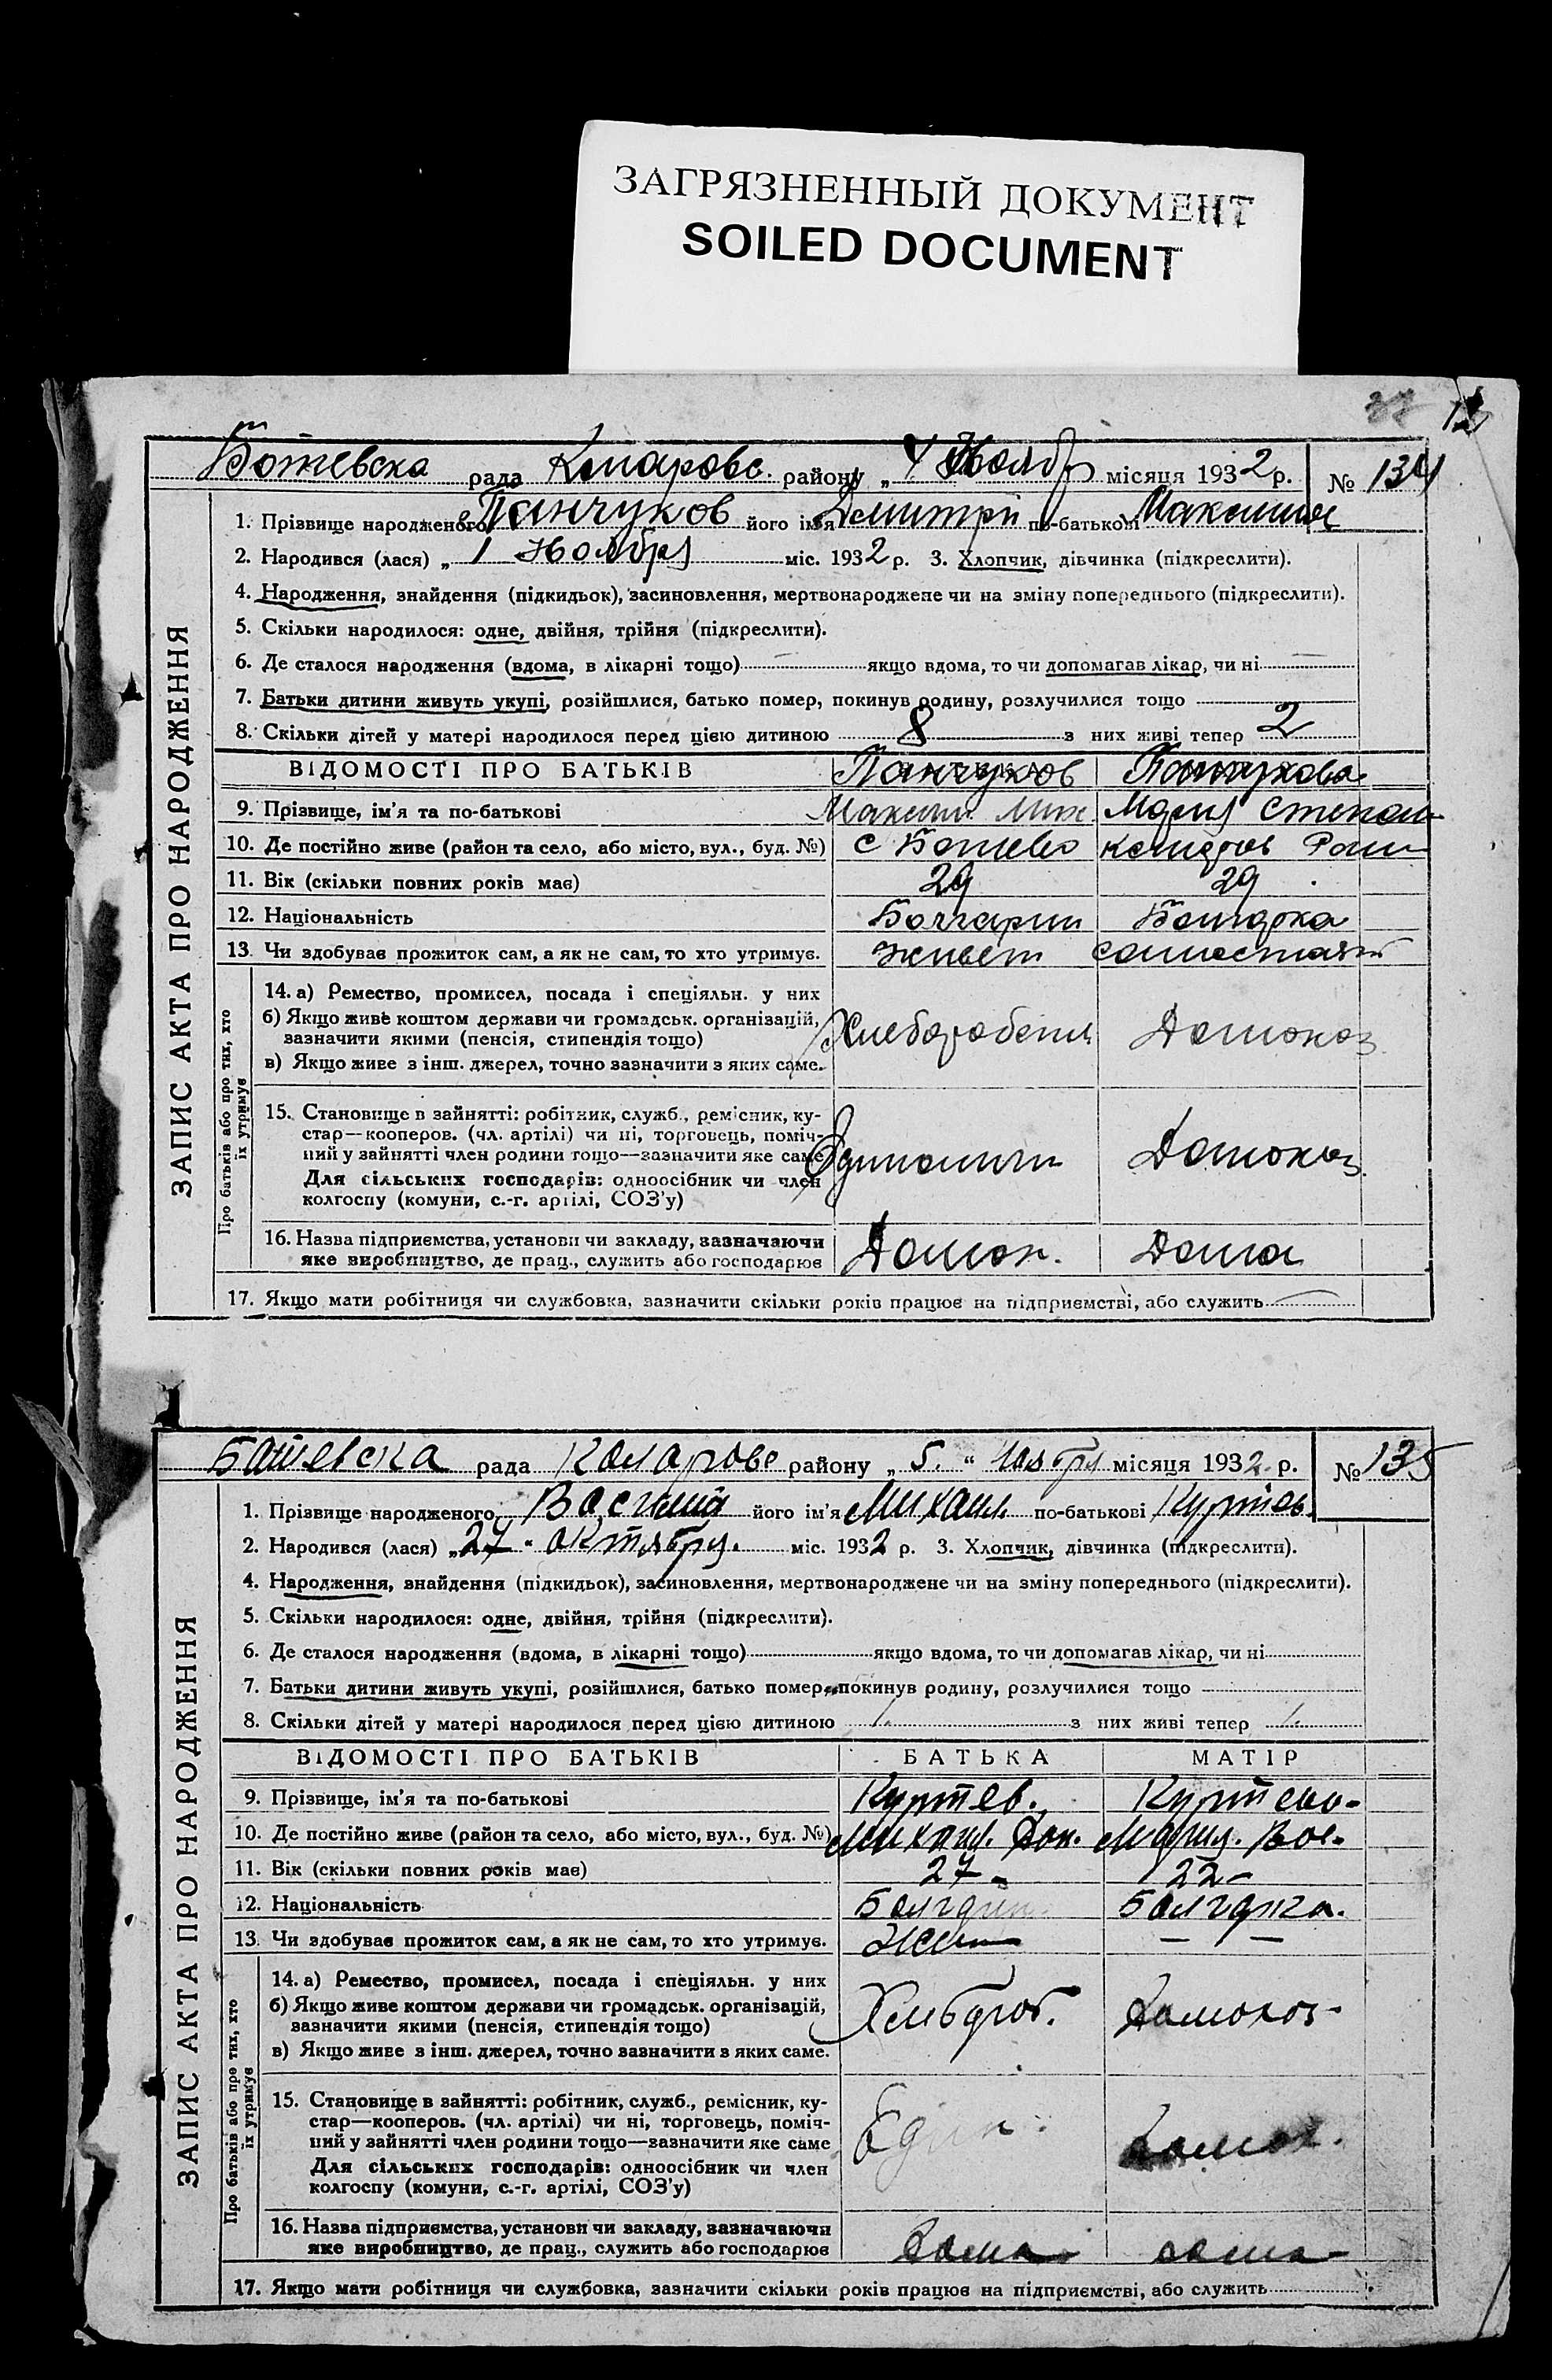 ЗАГРЯЗНЕННЫЙ ДОКУМЕНТ
SOILED DOCUMENT
Ботевска рада Коларовс. району „ 4 Ноябр місяця 1932 р. № 134
1. Прізвище народженого Панчуков його ім'я Дмитрий по-батькові Максимов
2. Народився (лася) „ 1 Ноября міс. 1932 р. 3. Хлопчик, дівчинка (підкреслити).
4. Народження, знайдення (підкидьок), засиновлення, мертвонароджене чи на зміну попереднього (підкреслити).
5. Скільки народилося: одне, двійня, трійня (підкреслити).
6. Де сталося народження (вдома, в лікарні тощо) якщо вдома, то чи допомагав лікар, чи ні
7. Батьки дитини живуть укупі, розійшлися, батько помер, покинув родину, розлучилися тощо
8. Скільки дітей у матері народилося перед цією дитиною 8 з них живі тепер 2
ЗАПИС АКТА ПРО НАРОДЖЕННЯ
ВІДОМОСТІ ПРО БАТЬКІВ Панчуков Панчукова
9. Прізвище, ім'я та по-батькові Максим Мих Мария Степан
10. Де постійно живе (район та село, або місто, вул., буд. №) с Ботево
11. Вік (скільки повних років має) 29 29
12. Національність Болгарин Болгарка
13. Чи здобуває прожиток сам, а як не сам, то хто утримує. живет
Про батьків або про тих, хто їх утримує
14. а) Ремество, промисел, посада і спеціяльн. у них
б) Якщо живе коштом держави чи громадськ. організацій,
зазначити якими (пенсія, стипендія тощо) Домохоз
в) Якщо живе з інш. джерел, точно зазначити з яких саме.
15. Становище в зайнятті: робітник, служб., ремісник, ку-
стар—кооперов. (чл. артілі) чи ні, торговець, поміч-
ний у зайнятті член родини тощо—зазначити яке саме Домохоз.
Для сільських господарів: одноосібник чи член
колгоспу (комуни, с.-г. артілі, СОЗ'у)
16. Назва підприємства, установи чи закладу, зазначаючи
яке виробництво, де прац., служить або господарює Домох. Дома
17. Якщо мати робітниця чи службовка, зазначити скільки років працює на підприємстві, або служить
Ботевска рада Коларовс району „ 5. “ Ноября місяця 1932 р. № 135
1. Прізвище народженого Василий його ім'я Михаил. по-батькові Куртев.
2. Народився (лася) „27“ октября. міс. 1932 р. 3. Хлопчик, дівчинка (підкреслити).
4. Народження, знайдення (підкидьок), засиновлення, мертвонароджене чи на зміну попереднього (підкреслити).
5. Скільки народилося: одне, двійня, трійня (підкреслити).
6. Де сталося народження (вдома, в лікарні тощо) якщо вдома, то чи допомагав лікар, чи ні
7. Батьки дитини живуть укупі, розійшлися, батько помер, покинув родину, розлучилися тощо
8. Скільки дітей у матері народилося перед цією дитиною 1. з них живі тепер 1.
ЗАПИС АКТА ПРО НАРОДЖЕННЯ
ВІДОМОСТІ ПРО БАТЬКІВ БАТЬКА МАТІР
9. Прізвище, ім'я та по-батькові Куртев. Куртева
10. Де постійно живе (район та село, або місто, вул., буд. №) Михаил. Мария. Вас.
11. Вік (скільки повних років має) 27 22
12. Національність Болгарин. Болгарка.
13. Чи здобуває прожиток сам, а як не сам, то хто утримує.
Про батьків або про тих, хто їх утримує
14. а) Ремество, промисел, посада і спеціяльн. у них
б) Якщо живе коштом держави чи громадськ. організацій,
зазначити якими (пенсія, стипендія тощо) Хлебороб. Домохоз
в) Якщо живе з інш. джерел, точно зазначити з яких саме.
15. Становище в зайнятті: робітник, служб., ремісник, ку-
стар—кооперов. (чл. артілі) чи ні, торговець, поміч-
ний у зайнятті член родини тощо—зазначити яке саме Един. Домох.
Для сільських господарів: одноосібник чи член
колгоспу (комуни, с.-г. артілі, СОЗ'у)
16. Назва підприємства, установи чи закладу, зазначаючи
яке виробництво, де прац., служить або господарює Дома дома
17. Якщо мати робітниця чи службовка, зазначити скільки років працює на підприємстві, або служить